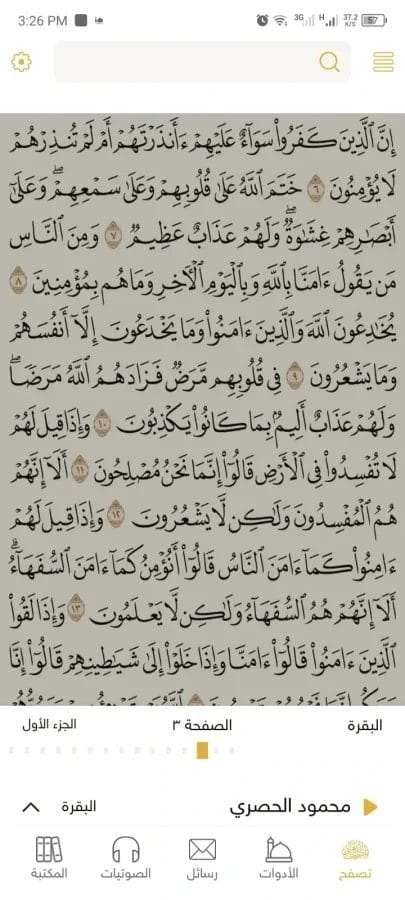 3:26 PM
3G H 37.2 K/S 57
إِنَّ ٱلَّذِينَ كَفَرُواْ سَوَآءٌ عَلَيْهِمْ ءَأَنذَرْتَهُمْ أَمْ لَمْ تُنذِرْهُمْ
لَا يُؤْمِنُونَ ٦ خَتَمَ ٱللَّهُ عَلَىٰ قُلُوبِهِمْ وَعَلَىٰ سَمْعِهِمْۖ وَعَلَىٰٓ
أَبْصَٰرِهِمْ غِشَٰوَةٌۖ وَلَهُمْ عَذَابٌ عَظِيمٌ ٧ وَمِنَ ٱلنَّاسِ
مَن يَقُولُ ءَامَنَّا بِٱللَّهِ وَبِٱلْيَوْمِ ٱلْأٓخِرِ وَمَا هُم بِمُؤْمِنِينَ ٨
يُخَٰدِعُونَ ٱللَّهَ وَٱلَّذِينَ ءَامَنُواْ وَمَا يَخْدَعُونَ إِلَّآ أَنفُسَهُمْ
وَمَا يَشْعُرُونَ ٩ فِى قُلُوبِهِم مَّرَضٌ فَزَادَهُمُ ٱللَّهُ مَرَضًاۖ
وَلَهُمْ عَذَابٌ أَلِيمٌۢ بِمَا كَانُواْ يَكْذِبُونَ ١٠ وَإِذَا قِيلَ لَهُمْ
لَا تُفْسِدُواْ فِى ٱلْأَرْضِ قَالُوٓاْ إِنَّمَا نَحْنُ مُصْلِحُونَ ١١ أَلَآ إِنَّهُمْ
هُمُ ٱلْمُفْسِدُونَ وَلَٰكِن لَّا يَشْعُرُونَ ١٢ وَإِذَا قِيلَ لَهُمْ
ءَامِنُواْ كَمَآ ءَامَنَ ٱلنَّاسُ قَالُوٓاْ أَنُؤْمِنُ كَمَآ ءَامَنَ ٱلسُّفَهَآءُۗ
أَلَآ إِنَّهُمْ هُمُ ٱلسُّفَهَآءُ وَلَٰكِن لَّا يَعْلَمُونَ ١٣ وَإِذَا لَقُواْ
ٱلَّذِينَ ءَامَنُواْ قَالُوٓاْ ءَامَنَّا وَإِذَا خَلَوْاْ إِلَىٰ شَيَٰطِينِهِمْ قَالُوٓاْ إِنَّا
البقرة الصفحة ٣ الجزء الأول
محمود الحصري البقرة
تصفح الأدوات رسائل الصوتيات المكتبة